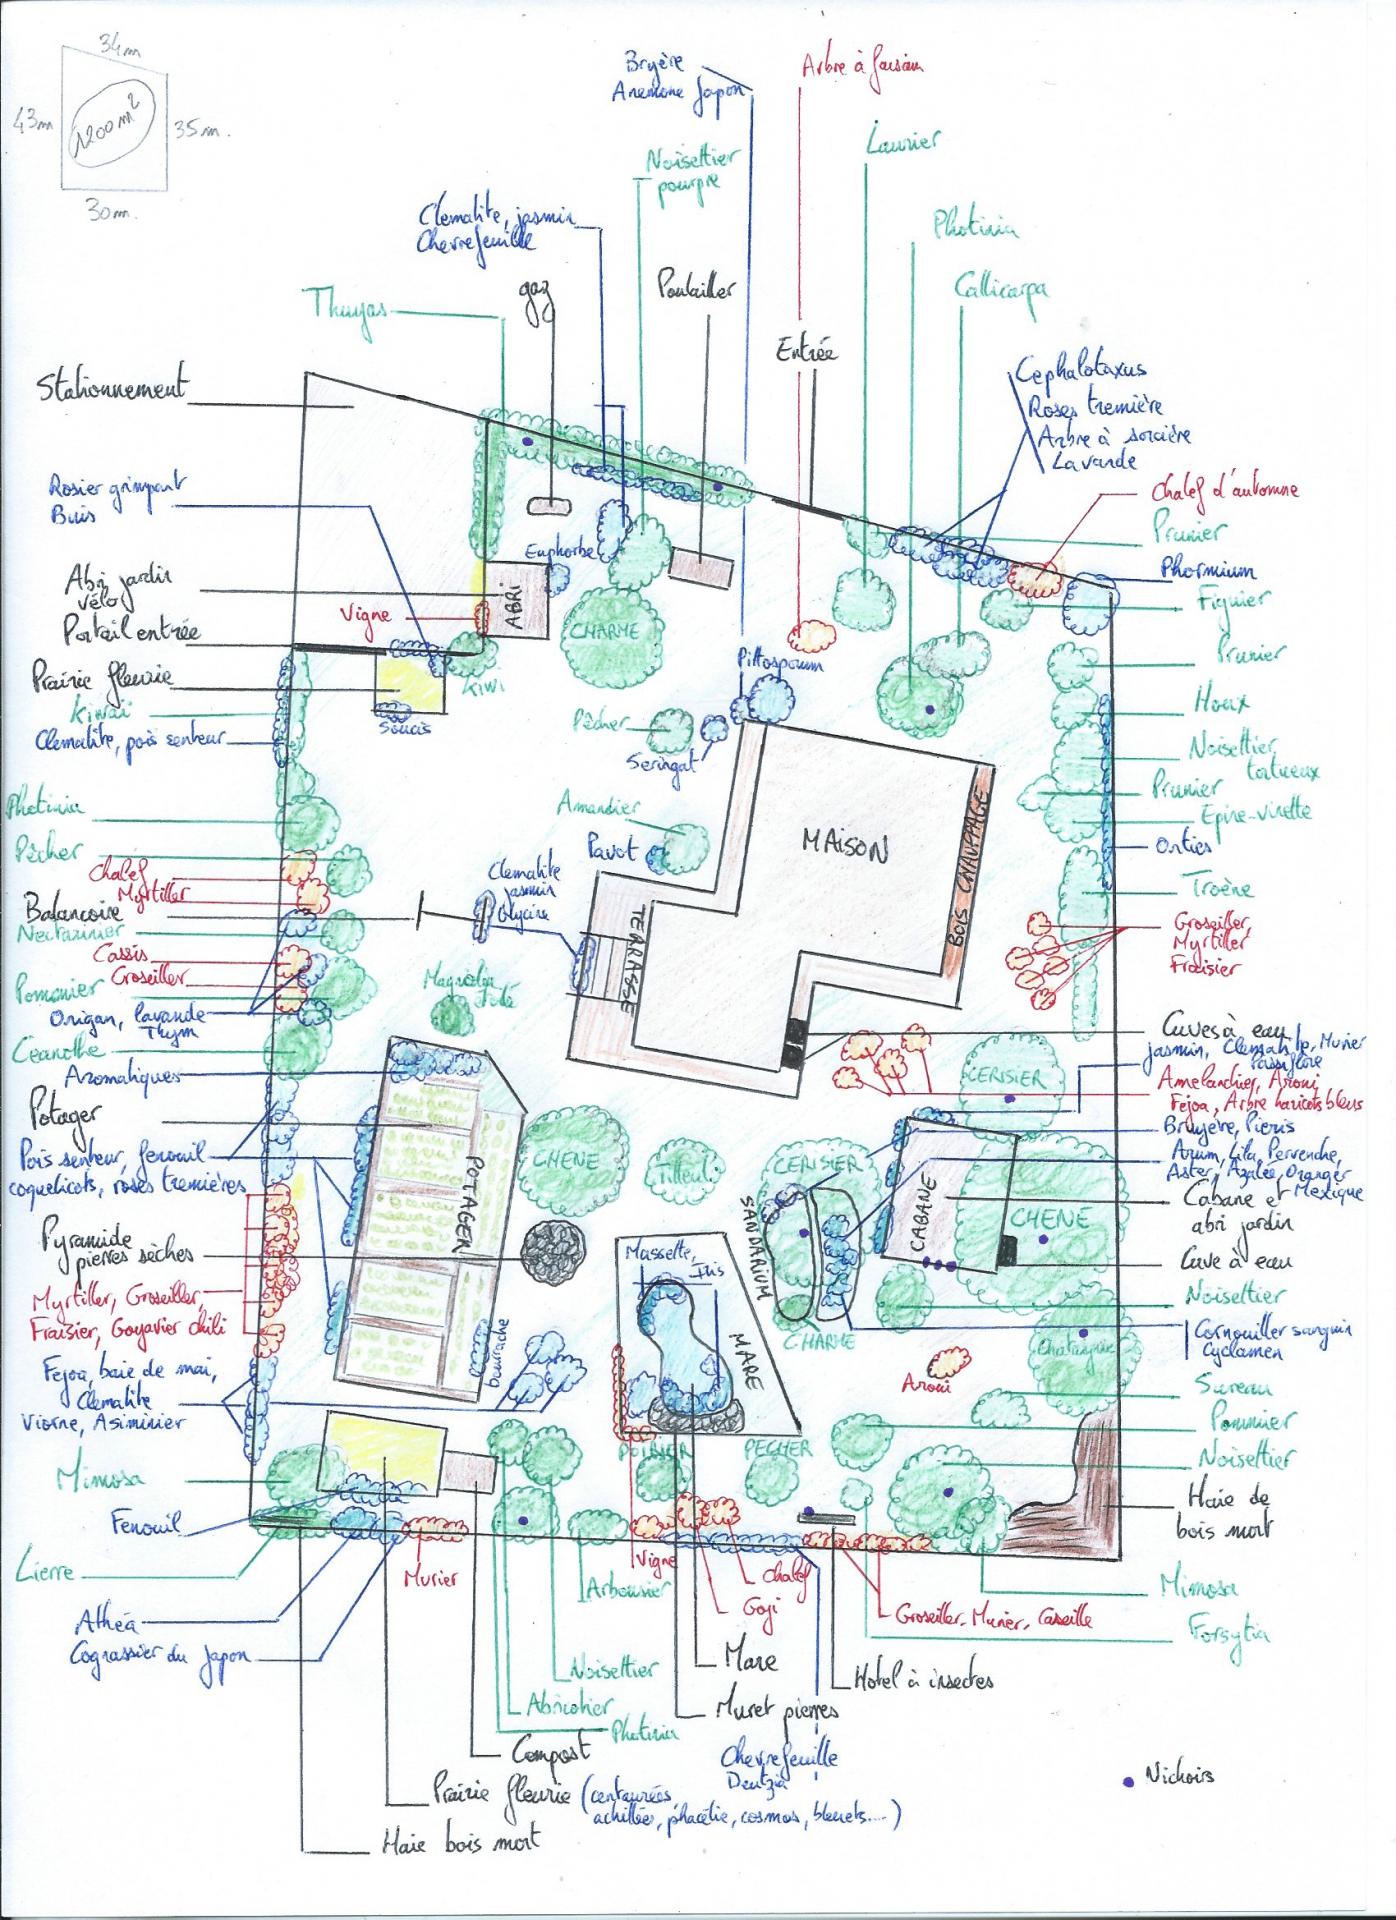 34m
43m
1200 m²
35m.
30m.
Bryère
Anemone Japon
Arbre à faisan
Laurier
Noisettier
pourpre
Clematite, jasmin
Chevrefeuille
Photinia
Callicarpa
Thuyas
gaz
Poulailler
Entrée
Stationnement
Cephalotaxus
Roses tremière
Arbre à sorcière
Lavande
Chalef d'automne
Rosier grimpant
Buis
Prunier
Euphorbe
Phormium
Abri jardin
vélo
ABRI
Figuier
Vigne
CHARME
Portail entrée
Prunier
Pittosporum
Prairie fleurie
Kiwi
Kiwaï
Houx
Soucis
Pêcher
Clematite, pois senteur
Seringat
Noisettier
tortueux
Photinia
Amandier
Prunier
Epine-vinette
Pêcher
Pavot
MAISON
BOIS CHAUFFAGE
Orties
Chalef
Myrtiller
Clematite
jasmin
Glycine
Troène
Balancoire
Nectarinier
TERRASSE
Groseiller,
Myrtiller
Fraisier
Cassis
Groseiller
Pommier
Magnolia
étoilé
Origan, lavande
Thym
Cuves à eau
Jasmin, Clematite, Murier
passiflore
Céanothe
Aromatiques
CERISIER
Amelanchier, Aroni
Fejoa, Arbre haricots bleus
Potager
Bruyère, Pieris
Pois senteur, fenouil
coquelicots, roses tremières
CHENE
Tilleul
CERISIER
Arum, Lila, Pervenche,
Aster, Azalée, Oranger
Mexique
POTAGER
SANDARIUM
CABANE
CHENE
Cabane et
abri jardin
Pyramide
pierres sèches
Massette,
Iris
Cuve à eau
Myrtiller, Groseiller,
Fraisier, Goyavier chili
Noisettier
CHARME
Cornouiller sanguin
Cyclamen
bourrache
MARE
Chataignier
Fejoa, baie de mai,
Clematite
Viorne, Asiminier
Aroni
Sureau
Pommier
POIRIER
PECHER
Noisettier
Mimosa
Haie de
bois mort
Fenouil
Lierre
Murier
Vigne
Chalef
Arbousier
Goji
Mimosa
Groseiller, Murier, Caseille
Forsytia
Athéa
Cognassier du Japon
Noisettier
Mare
Hotel à insectes
Abricotier
Muret pierres
Photinia
Compost
Chevrefeuille
Deutzia
Nichoirs
Prairie fleurie (centaurées,
achillée, phacélie, cosmos, bleuets....)
Haie bois mort